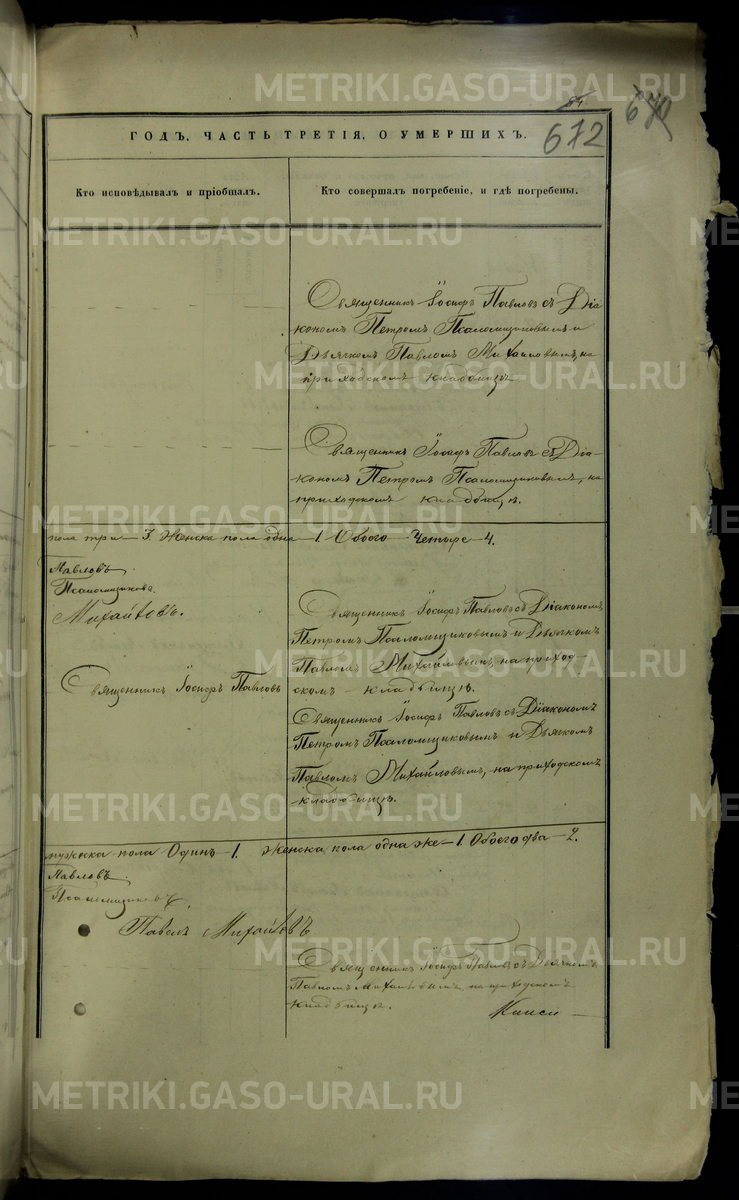 METRIKI.GASO-URAL.RU
672
ГОДЪ, ЧАСТЬ ТРЕТІЯ, О УМЕРШИХЪ.
Кто исповѣдывалъ и пріобщалъ.
Кто совершалъ погребеніе, и гдѣ погребены.
Священникъ Іосифъ Павловъ съ Діа-
кономъ Петромъ Псаломщиковымъ и
Дьячкомъ Павломъ Михайловымъ, на
приходскомъ кладбищѣ.
Священникъ Іосифъ Павловъ съ Діа-
кономъ Петромъ Псаломщиковымъ, на
приходскомъ кладбищѣ.
пола три – 3. Женска пола одна – 1. Обоего – Четыре – 4.
Павловъ
Псаломщиковъ
Михайловъ.
Священникъ Іосифъ Павловъ съ Діакономъ
Петромъ Псаломщиковымъ и Дьячкомъ
Павломъ Михайловымъ на приход-
Священникъ Іосифъ Павловъ
скомъ кладбищѣ.
Священникъ Іосифъ Павловъ съ Діакономъ
Петромъ Псаломщиковымъ и Дьячкомъ
Павломъ Михайловымъ, на приходскомъ
кладбищѣ.
мужеска пола Одинъ – 1. Женска пола одна же – 1. Обоего два – 2.
Павловъ
Псаломщиковъ
Павелъ Михайловъ
Священникъ Іосифъ Павловъ съ Дьячкомъ
Павломъ Михайловымъ, на приходскомъ
кладбищѣ.